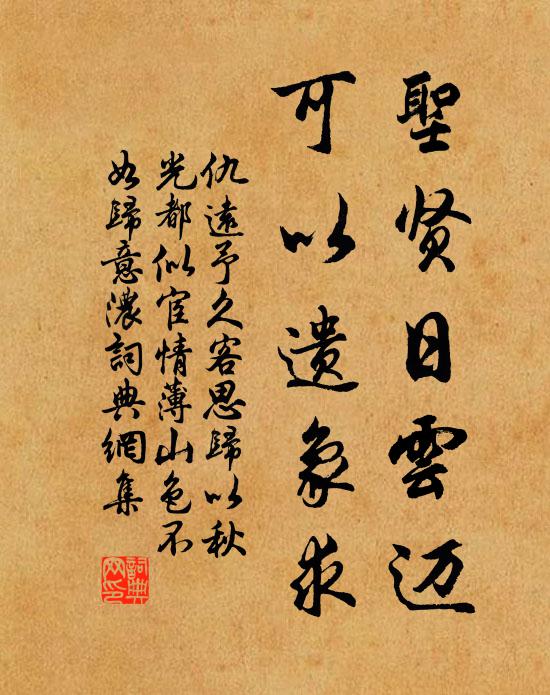 聖贤日雲迈
可以遗象求
仇遠予久客思歸以秋
光都似宦情薄山色不
如歸意濃詞典網集
詞典
网印